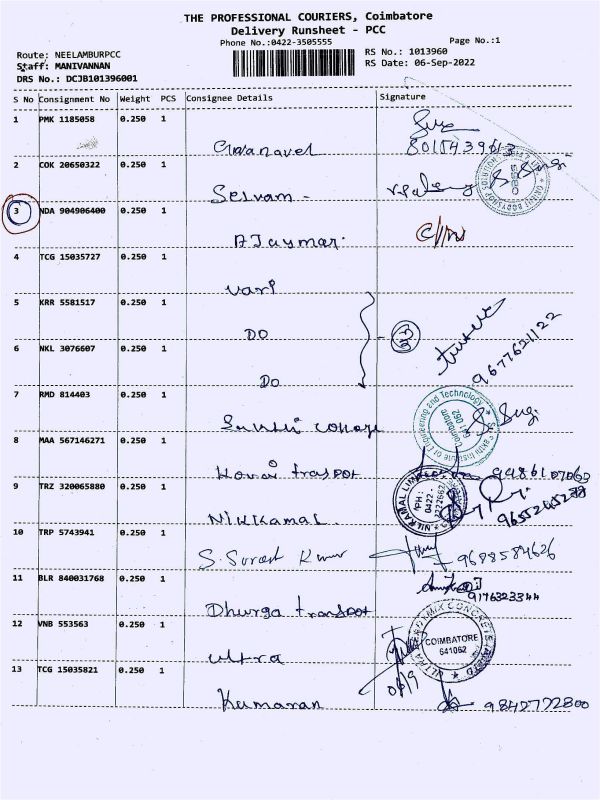 THE PROFESSIONAL COURIERS, Coimbatore
Delivery Runsheet - PCC
Phone No.:0422-3505555
Page No.:1
Route: NEELAMBURPCC
RS No.: 1013960
Staff: MANIVANNAN
RS Date: 06-Sep-2022
DRS No.: DCJB101396001
S No Consignment No Weight PCS Consignee Details Signature
1 PMK 1185058 0.250 1
Gnanavel 8015439613
2 COK 20650322 0.250 1
Selvam
3 NDA 904906400 0.250 1
A Jaymar.
4 TCG 15035727 0.250 1
Vari
5 KRR 5581517 0.250 1
DO
6 NKL 3076607 0.250 1
9677621122
DO
7 RMD 814403 0.250 1
College
8 MAA 567146271 0.250 1
Kovai traspot
9 TRZ 320065880 0.250 1
NILKAMAL LIMITED
PH: 0422-
Nilkamal
10 TRP 5743941 0.250 1
S. Suresh Kumar 9688584626
11 BLR 840031768 0.250 1
9176323344
Dhurga transpot
12 VNB 553563 0.250 1
COIMBATORE
641062
ultra
06/9
13 TCG 15035821 0.250 1
Kumaran 9842722800